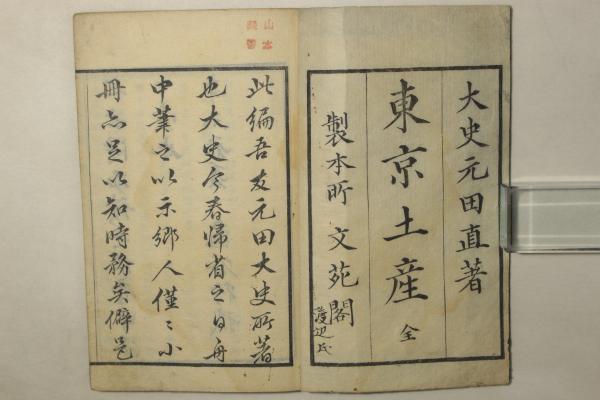 大史元田直著
東京土産 全
製本所 文苑閣
渡辺氏
此編吾友元田大史所著
也大史今春帰省之日舟
中筆之以示郷人僅〻小
冊亦足以知時務矣僻邑
山本